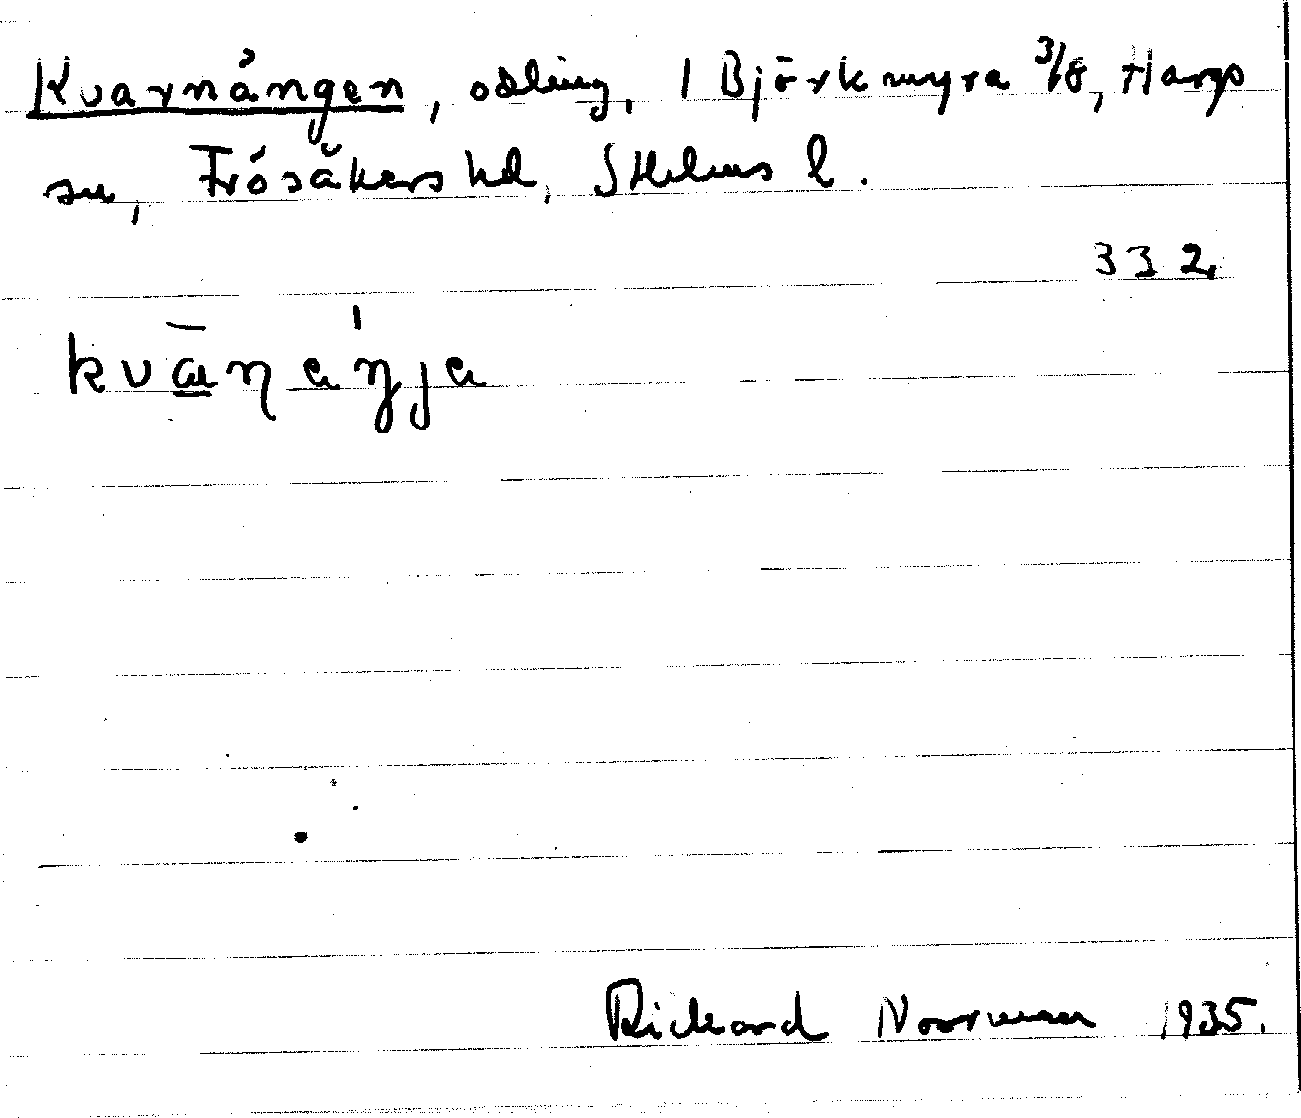 Kvarnången, odling, 1 Björkmyra 3/8, Hargs
sn, Frösåkers hd, Sthlms l.
332.
kvāṉaŋ́ja
Rickard Norrman 1935.